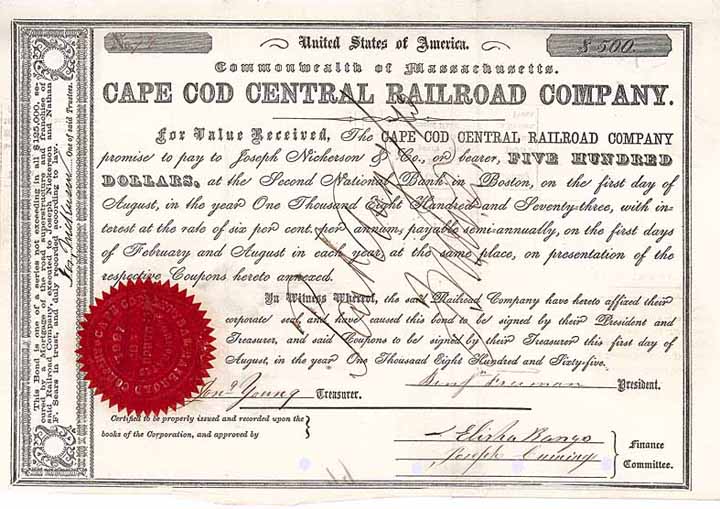 No.
$500.
United States of America.
Commonwealth of Massachusetts.
CAPE COD CENTRAL RAILROAD COMPANY.
For Value Received, The CAPE COD CENTRAL RAILROAD COMPANY
promise to pay to Joseph Nickerson & Co., or bearer, FIVE HUNDRED
DOLLARS, at the Second National Bank in Boston, on the first day of
August, in the year One Thousand Eight Hundred and Seventy-three, with in-
terest at the rate of six per cent. per annum, payable semi-annually, on the first days
of February and August in each year, at the same place, on presentation of the
respective Coupons hereto annexed.
In Witness Whereof, the said Railroad Company have hereto affixed their
corporate seal, and have caused this bond to be signed by their President and
Treasurer, and said Coupons to be signed by their Treasurer this first day of
August, in the year One Thousand Eight Hundred and Sixty-five.
Jona Young Treasurer.
Benj Freeman President.
Certified to be properly issued and recorded upon the
books of the Corporation, and approved by
Elisha Bangs
Joseph Cummings
Finance
Committee.
This Bond is one of a series not exceeding in all $125,000, se-
cured by a Mortgage of the road, superstructure and franchise of
said Railroad Company, executed to Joseph Nickerson and Nathan
F. Sears in trust, and duly recorded according to law.
One of said Trustees.